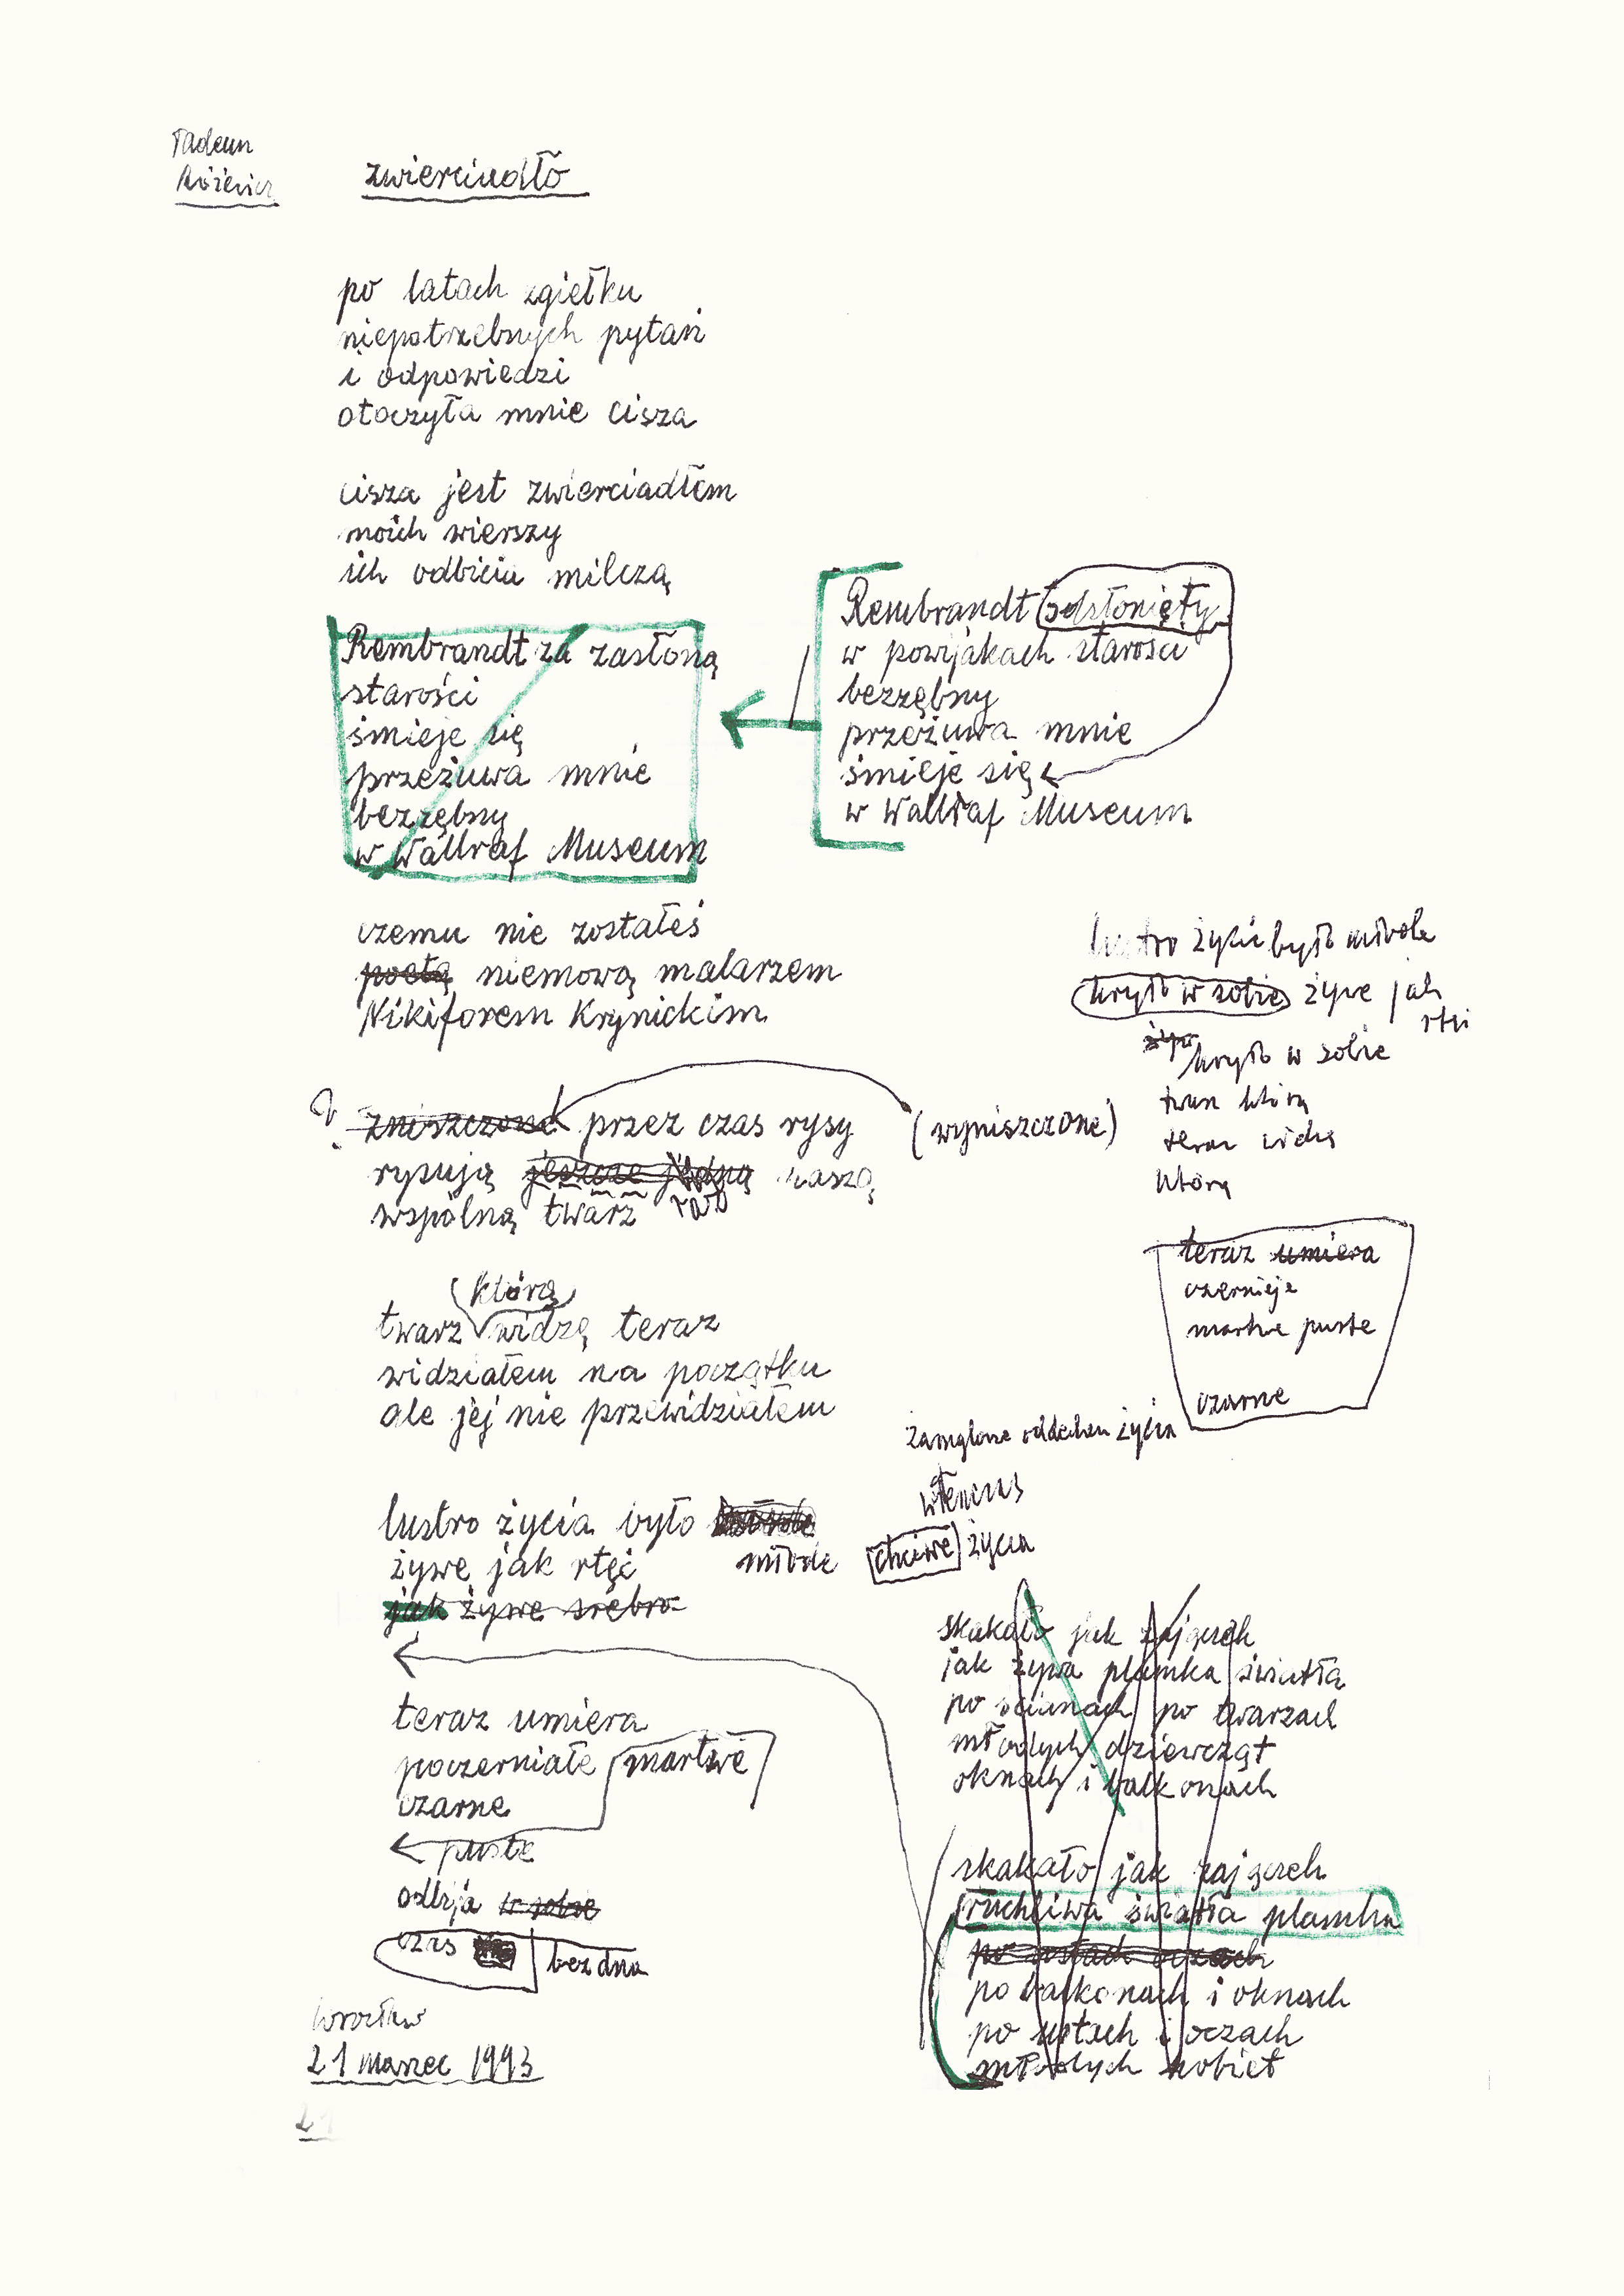 Tadeusz
Różewicz
zwierciadło
po latach zgiełku
niepotrzebnych pytań
i odpowiedzi
otoczyła mnie cisza
cisza jest zwierciadłem
moich wierszy
ich odbicia milczą
Rembrandt za zasłoną
starości
śmieje się
przeżuwa mnie
bezzębny
w Wallraf Museum
Rembrandt odsłonięty
w powijakach starości
bezzębny
przeżuwa mnie
śmieje się
w Wallraf Museum
czemu nie zostałeś
poetą niemową malarzem
Nikiforem Krynickim
zniszczone przez czas rysy
(wyniszczone)
rysują jeszcze jedną naszą
wspólną twarz
którą
twarz widzę teraz
widziałem na początku
ale jej nie przewidziałem
lustro życia było młode
kryło w sobie żywe jak
rtęć
kryło w sobie
twarz którą
teraz widzę
którą
teraz umiera
czernieje
martwe puste
czarne
zamglone oddechem życia
wtenczas
chciwe życia
lustro życia było
żywe jak rtęć młode
jak żywe srebro
skakało jak zajączek
jak żywa plamka światła
po ścianach po twarzach
młodych dziewcząt
oknach i balkonach
teraz umiera
poczerniałe martwe
czarne
puste
odbija w sobie
czas bez dna
skakało jak zajączek
ruchliwa światła plamka
po ustach oczach
po balkonach i oknach
po ustach i oczach
młodych kobiet
Wrocław
21 marzec 1993
21